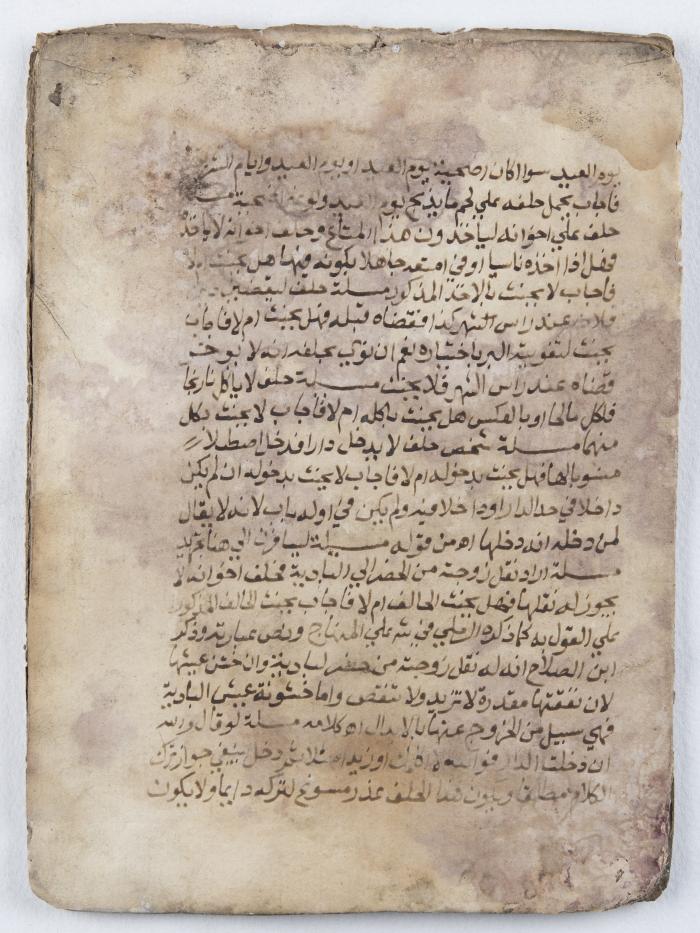 يوم العيد سوا اكان اضحية يوم العيد او يوم العيد وايام
فاجاب يحمل حلفه علي لحم ما يذبح يوم العيد ولو
حلف علي اخوانه لياخذون هذا المتاع وحلف اخوانه لا ياخذ
فهل اذا اخذه ناسيا او جاهلا بكونه هل يحنث
فاجاب لا يحنث بالاخذ المذكور مسلة حلف ليقضين
عند راس الشهر كذا فقضاه قبله فهل يحنث ام لا فاجاب
يحنث لتفويته البر باختياره نعم ان نوي بحلفه انه لا يوخر
قضاه عند راس الشهر فلا يحنث مسلة حلف لا ياكل نارنجا
فاكل مالحا او بالعكس هل يحنث باكله ام لا فاجاب لا يحنث بكل
منهما مسلة شخص حلف لا يدخل دارا فدخل اصطبلا
منسوبا لها فهل يحنث بدخوله ام لا فاجاب لا يحنث بدخوله ان لم يكن
داخلا في حد الدار او داخلا فيه ولم يكن في اوله باب لانه لا يقال
لمن دخله انه دخلها اه من قوله مسلة الي هنا
مسلة اراد نقل زوجته من الحضر الي البادية فحلف اخوانه لا
يجوز له نقلها فهل يحنث الحالف ام لا فاجاب يحنث الحالف المذكور
علي القول به كما ذكره الرملي في شرح علي المنهاج ونص عبارته وذكر
ابن الصلاح انه له نقل زوجته من حضر لبادية وان خشن عيشها
لان نفقتها مقدرة لا تزيد ولا تنقص واما خشونة عيش البادية
فهي سبيل من الخروج عنها بالابدال اه كلامه مسلة لو قال
ان دخلت الدار فوالله لا اكلمك دخل ينبغي جواز ترك
الكلام مطلقا ويكون هذا الحلف عذر مسوغ لتركه دايما ولا يكون